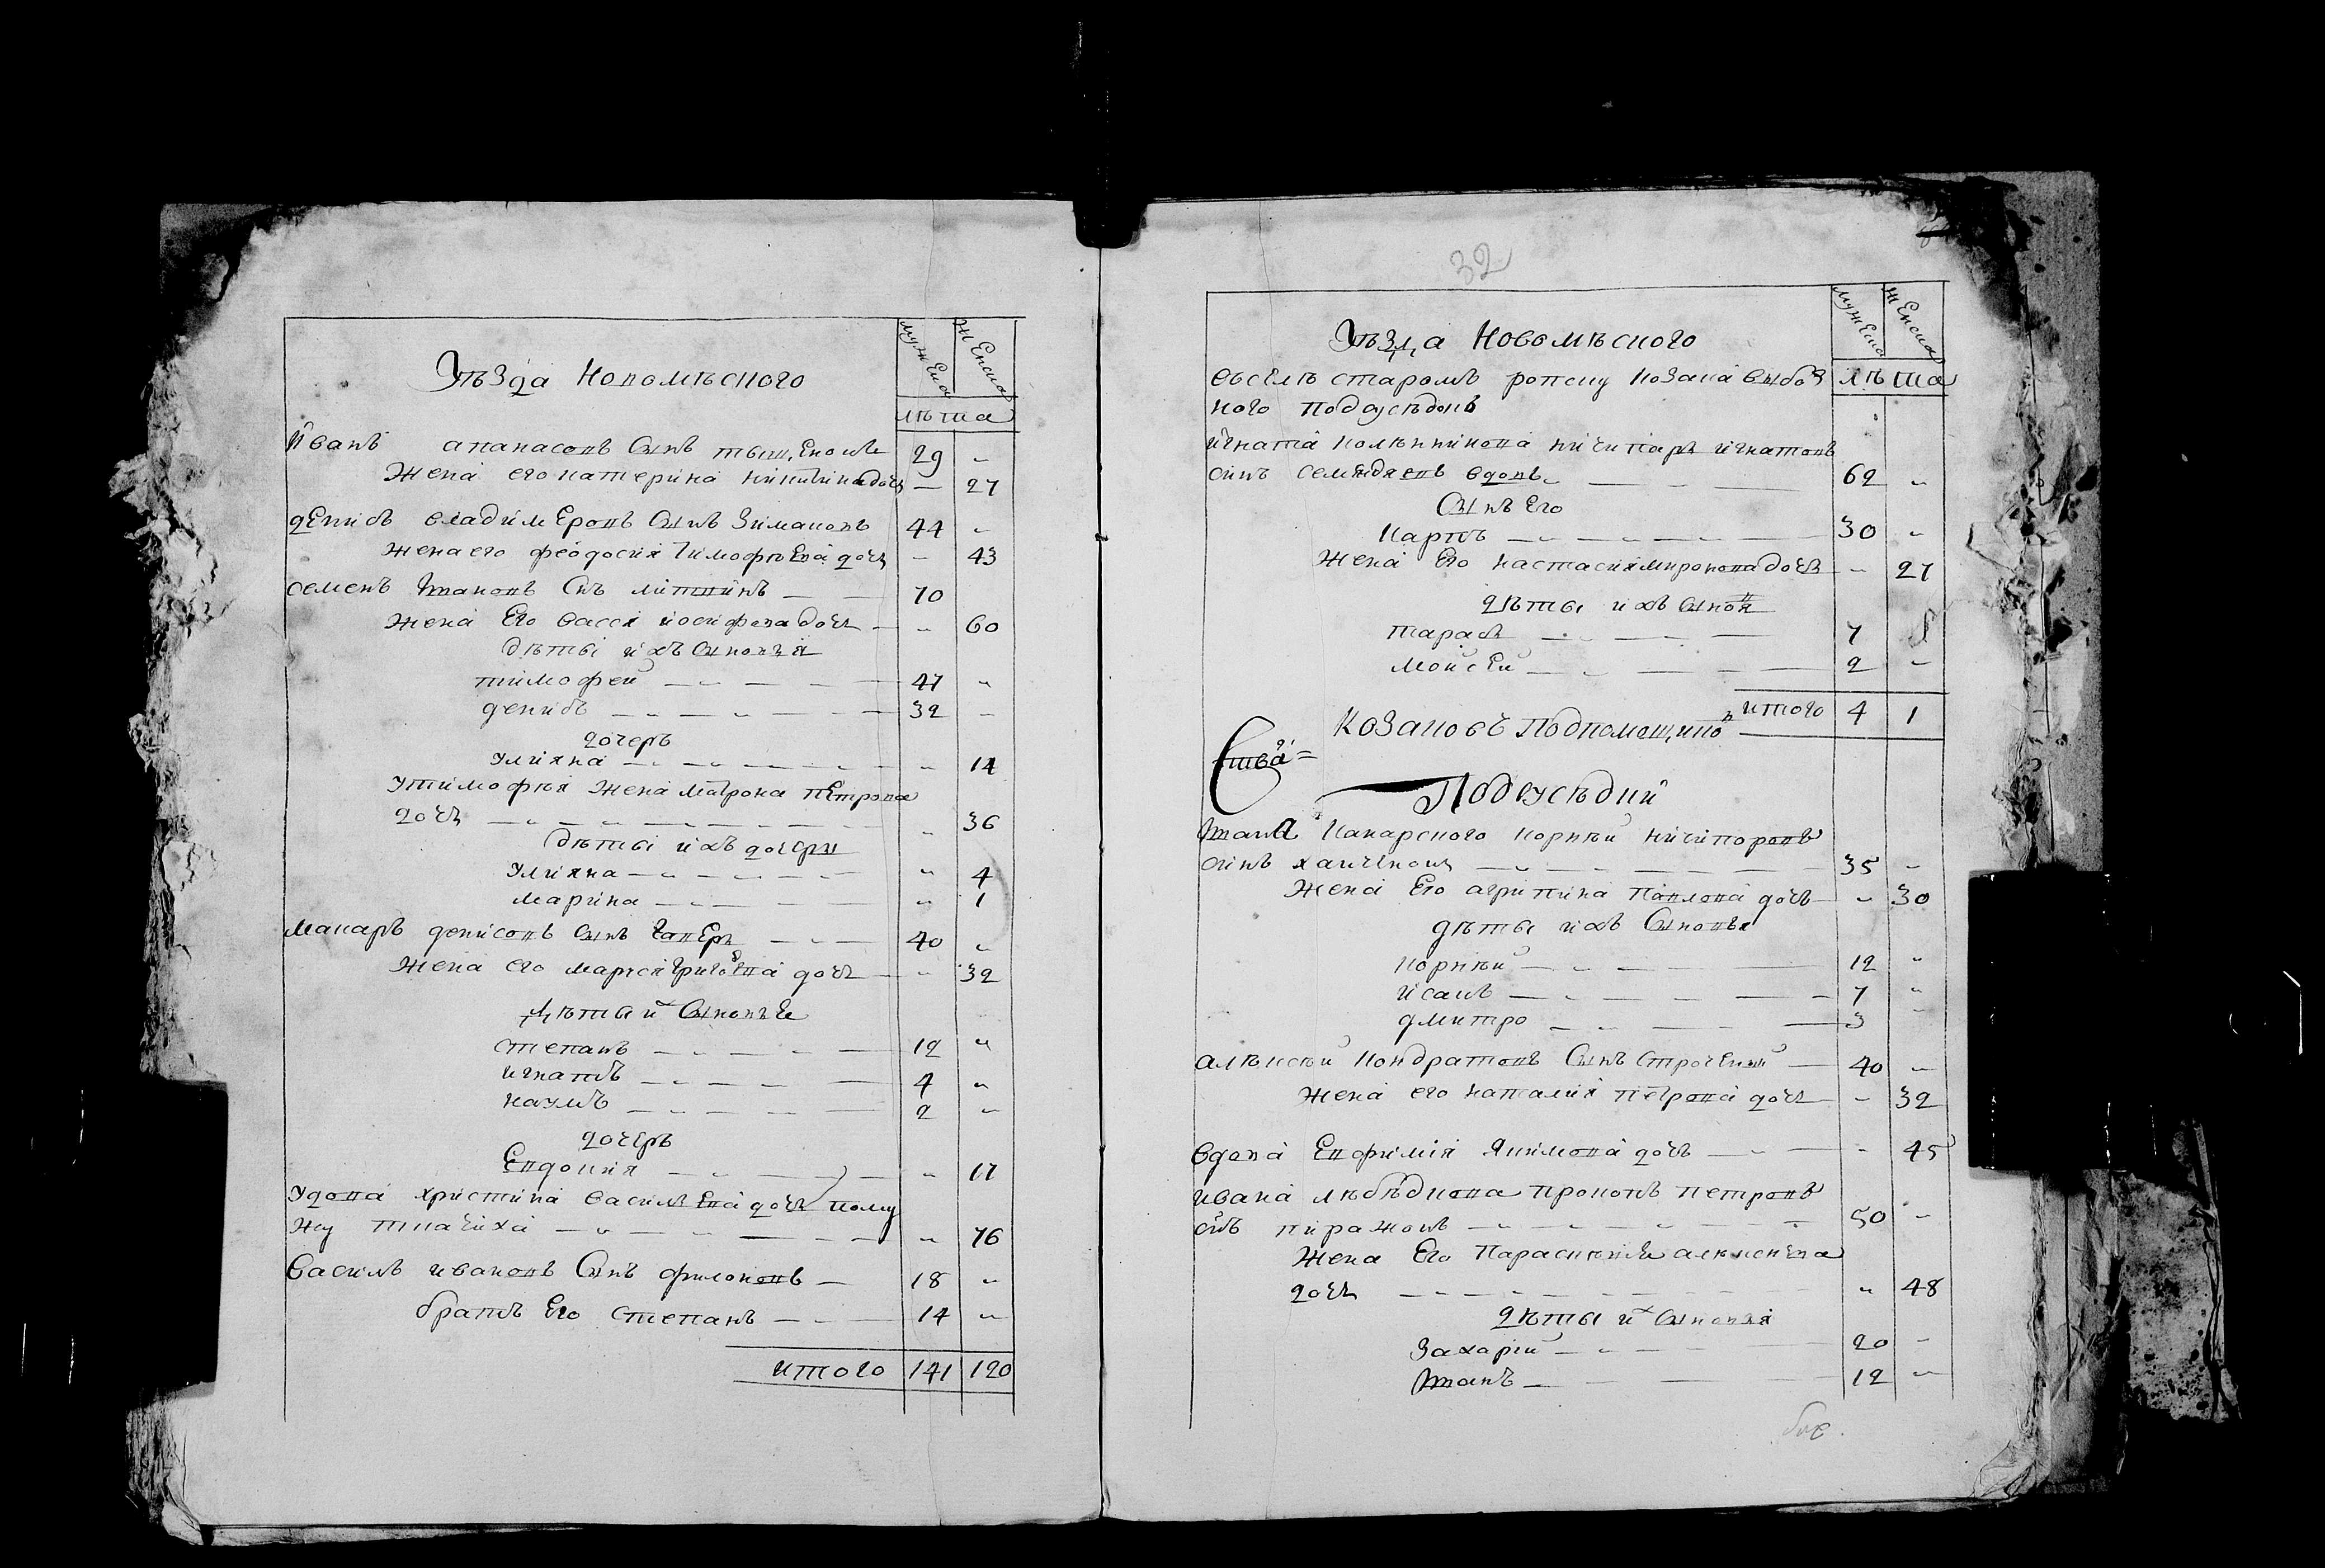 Уѣзда Новомѣского
мужеска
женска
лѣта
Иванъ апанасовъ Сынъ 29 „
Жена его катерина никитина дочь — 27
денисъ владимеровъ Сынъ Зимаковъ 44 „
жена его феодосия Тимофѣева дочь — 43
семенъ Снъ литвинъ — — 70
Жена Его васся иосифова дочь — „ 60
дѣты ихъ Сыновя
тимофей 47 „
денисъ 32 „
дочеръ
Улияна „ 14
Утимофѣя жена матрона петрова
дочь „ 36
дѣты ихъ дочери
Улияна „ 4
марина „ 1
макаръ денисовъ Сынъ 40 „
Жена его дочь „ 32
дѣты их Сыновье
степанъ 12 „
игнатъ 4 „
наумъ 2 „
дочеръ
Евдокия „ 17
Удова христина василѣева дочь пому
жу ткачиха „ 76
Василь ивановъ Сынъ филоновъ — 18 „
братъ Его степанъ 14 „
итого 141 120
32
Уѣзда Новомѣского
мужеска
женска
лѣта
въселѣ старомъ ропску козака выбор
ного подсусѣдокъ
игната колѣнникова ничипаръ игнатовъ
синъ вдовъ 62 „
Сынъ Его
Карпъ 30 „
Жена Его настасия миронова дочь — 27
дѣты ихъ Сыновя
тарасъ 7
мойсей 2 „
итого 4 1
Козаковъ Подпомощико
Подсусѣдки
корнѣй ничипоровъ
синъ 35 „
Жена Его агрипина павлова дочь „ 30
дѣты ихъ Сыновья
корнѣй 12 „
исакъ 7 „
дмитро 3 „
алѣксѣй кондратовъ Сынъ 40 „
жена его наталия петрова дочь „ 32
вдова Евфимия Якимова дочь „ 45
ивана лѣбѣдкова прокопъ петровъ
снъ пиражокъ 50 „
Жена Его Парасковия алѣксѣева
дочь „ 48
дѣты их Сыновя
Захарий 20 „
12 „